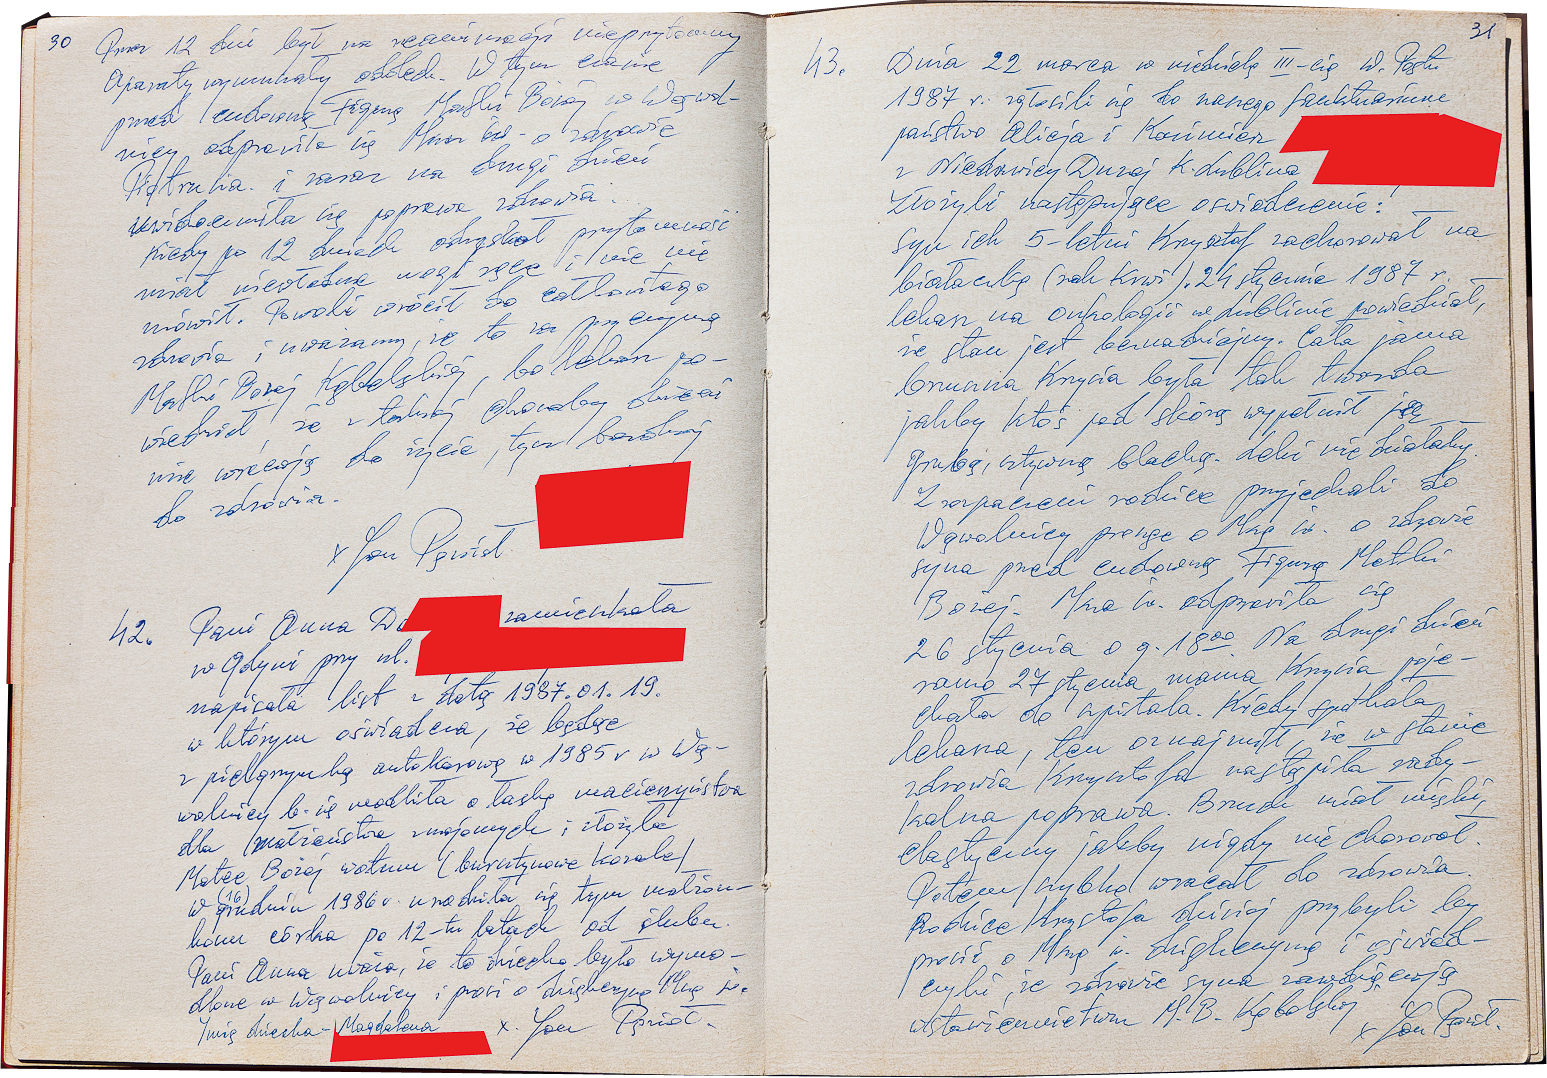 30
Przez 12 dni był na reanimacji nieprzytomny
Aparaty wymuszały oddech. W tym czasie
przed cudowną Figurą Matki Bożej w Wąwol-
nicy odprawiła się Msza św. o zdrowie
Piotrusia. i zaraz na drugi dzień
uwidoczniła się poprawa zdrowia.
Kiedy po 12 dniach odzyskał przytomność
miał niewładne nogi ręce i nic nie
mówił. Powoli wrócił do całkowitego
zdrowia i uważamy, że to za przyczyną
Matki Bożej Kębelskiej, bo lekarz po-
wiedział, że z takiej choroby dzieci
nie wracają do życia, tym bardziej
do zdrowia.
x Jan Pęzioł
42. Pani Anna Du zamieszkała
w Gdyni przy ul.
napisała list z datą 1987.01.19.
w którym oświadcza, że będąc
z pielgrzymką autokarową w 1985 r w Wą-
wolnicy b. się modliła o łaskę macierzyństwa
dla małżeństwa znajomych i złożyła
Matce Bożej wotum (bursztynowe korale)
w (16) grudniu 1986 r. urodziła się tym małżon-
kom córka po 12-tu latach od ślubu.
Pani Anna uważa, że to dziecko było wymo-
dlone w Wąwolnicy i prosi o dziękczynną Mszę św.
Imię dziecka - Magdalena x. Jan Pęzioł.
31
43. Dnia 22 marca w niedzielę III-cią W. Postu
1987 r. zgłosili się do naszego Sanktuarium
państwo Alicja i Kazimierz
z Niedrzwicy Dużej K. Lublina
Złożyli następujące oświadczenie:
syn ich 5-letni Krzysztof zachorował na
białaczkę (rak krwi). 24 stycznia 1987 r.
lekarz na onkologii w Lublinie powiedział,
że stan jest beznadziejny. Cała jama
brzuszna Krzysia była tak twarda
jakby ktoś pod skórą wypełnił ją
grubą, sztywną blachą. Leki nie działały.
Z rozpaczeni rodzice przyjechali do
Wąwolnicy prosząc o Mszę św. o zdrowie
syna przed cudowną Figurą Matki
Bożej. Msza św. odprawiła się
26 stycznia o g. 18⁰⁰. Na drugi dzień
rano 27 stycznia mama Krzysia poje-
chała do szpitala. Kiedy spotkała
lekarza, ten oznajmił, że w stanie
zdrowia Krzysztofa nastąpiła rady-
kalna poprawa. Brzuch miał miękki,
elastyczny jakby nigdy nie chorował.
Potem szybko wracał do zdrowia.
Rodzice Krzysztofa dzisiaj przybyli by
prosić o Mszę św. dziękczynną i oświad-
czyli, że zdrowie syna zawdzięczają
wstawiennictwu M. B. Kębelskiej.
x Jan Pęzioł.